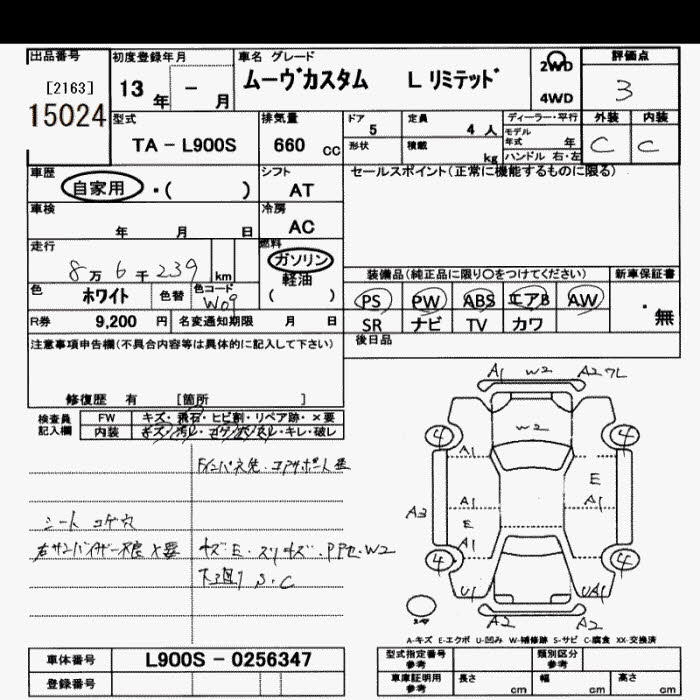 出品番号
[2163]
15024
初度登録年月
13 年 - 月
車名 グレード
ムーヴカスタム Lリミテッド
2WD
4WD
評価点
3
外装 内装
C C
型式
TA - L900S
排気量
660 cc
ドア
5
定員
4 人
形状
積載
kg
ディーラー・平行
モデル
年式 年
ハンドル 右・左
車歴
自家用 ・( )
シフト
AT
セールスポイント(正常に機能するものに限る)
車検
年 月 日
冷房
AC
走行
8万6千239 km
燃料
ガソリン
軽油
( )
装備品(純正品に限り○をつけてください)
新車保証書
・ 無
PS PW ABS エアB AW
SR ナビ TV カワ
色
ホワイト
色替
色コード
W09
R券 9,200 円
名変通知期限 月 日
後日品
注意事項申告欄(不具合内容等は具体的に記入して下さい)
修復歴 有 [箇所 ]
検査員
記入欄
FW キズ・飛石・ヒビ割・リペア跡・×要
内装 キズ・汚レ・コゲ・穴・スレ・キレ・破レ
シート コゲ穴
キズ E・スリキズ・PPセ・W2
下回り S・C
A1 W2 A2ワレ
W2
4 4
A1
E
A1
A3
A1
E
A1
4 4
U1 UA1
A2 A2
A-キズ E-エクボ U-凹み W-補修跡 S-サビ C-腐食 XX-交換済
車体番号 L900S - 0256347
登録番号
型式指定番号
参考
類別区分
参考
車庫証明用
参考
長さ cm
幅 cm
高さ cm